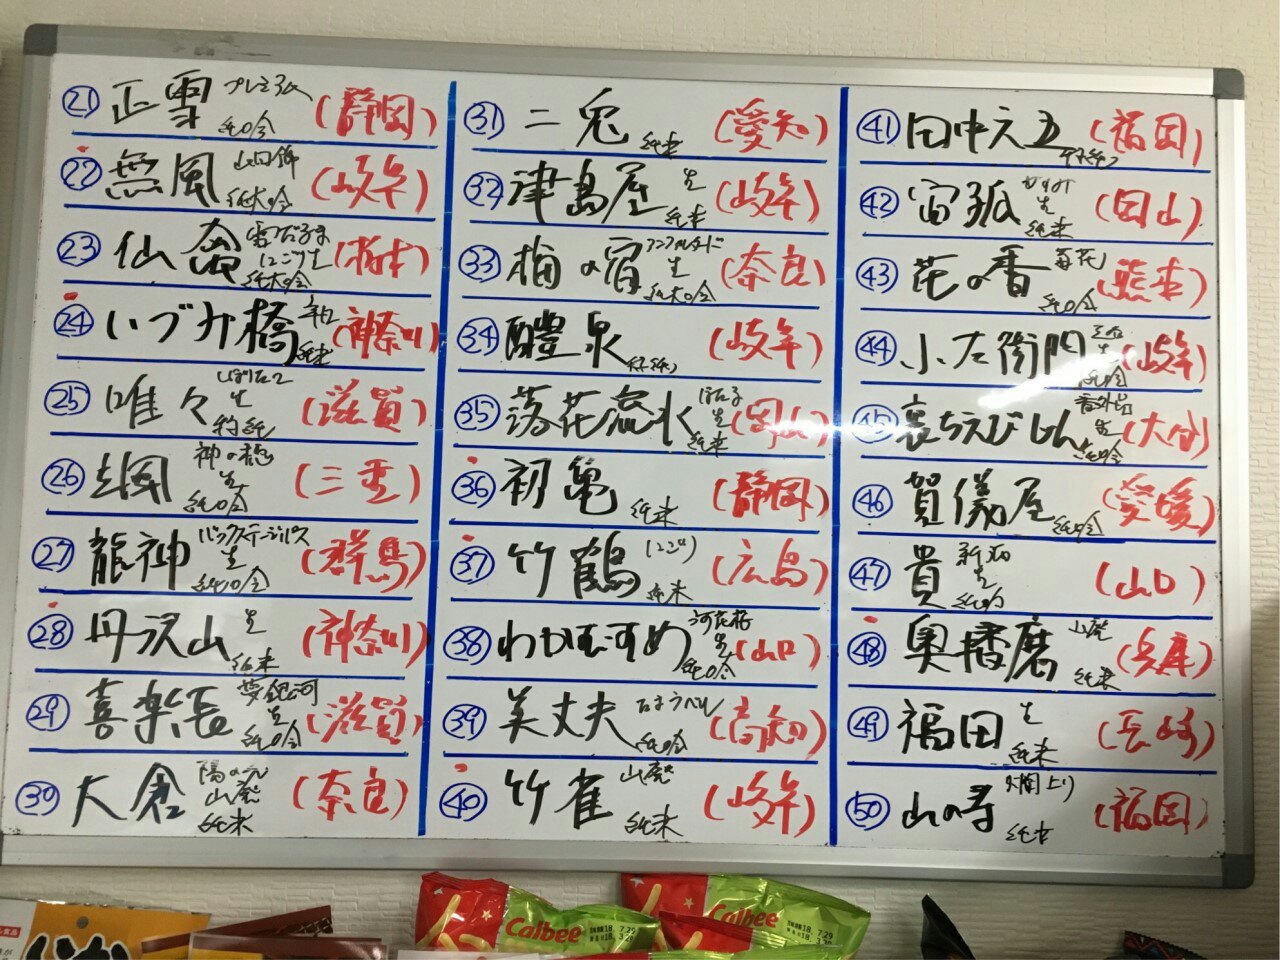 ㉑ 正雪 プレミアム 純吟 (静岡)
㉒ 無風 山田錦 純大吟 (岐阜)
㉓ 仙禽 雪だるま にごり生 純大吟 (栃木)
㉔ いづみ橋 辛口 純米 (神奈川)
㉕ 唯々 しぼりたて 生 特純 (滋賀)
㉖ 神の穂 生 純吟 (三重)
㉗ 龍神 バックステージパス 生 純吟 (群馬)
㉘ 丹沢山 生 純米 (神奈川)
㉙ 喜楽長 夢銀河 生 純吟 (滋賀)
㉚ 大倉 陽の光 山廃 純米 (奈良)
㉛ 二兎 純米 (愛知)
㉜ 津島屋 生 純米 (岐阜)
㉝ 梅の宿 アンフィルタード 生 純大吟 (奈良)
㉞ 醴泉 特純 (岐阜)
㉟ 落花流水 生 純米 (岡山)
㊱ 初亀 純米 (静岡)
㊲ 竹鶴 にごり 純米 (広島)
㊳ わかむすめ 河花桜 生 純吟 (山口)
㊴ 美丈夫 たまラベル 純吟 (高知)
㊵ 竹雀 山廃 純米 (岐阜)
㊶ 田中六五 (福岡)
㊷ 宙狐 かすみ 生 純米 (岡山)
㊸ 花の香 菊花 純吟 (熊本)
㊹ 小左衛門 生 純吟 (岐阜)
㊺ 裏ちえびじん 番外品 生 純吟 (大分)
㊻ 賀儀屋 純吟 (愛媛)
㊼ 貴 新酒 生 純吟 (山口)
㊽ 奥播磨 山廃 純米 (兵庫)
㊾ 福田 生 純米 (長崎)
㊿ 山の寿 火燗上り 純米 (福岡)
Calbee
18. 7.29
18. 3.28
Calbee
18. 7.29
18. 3.28